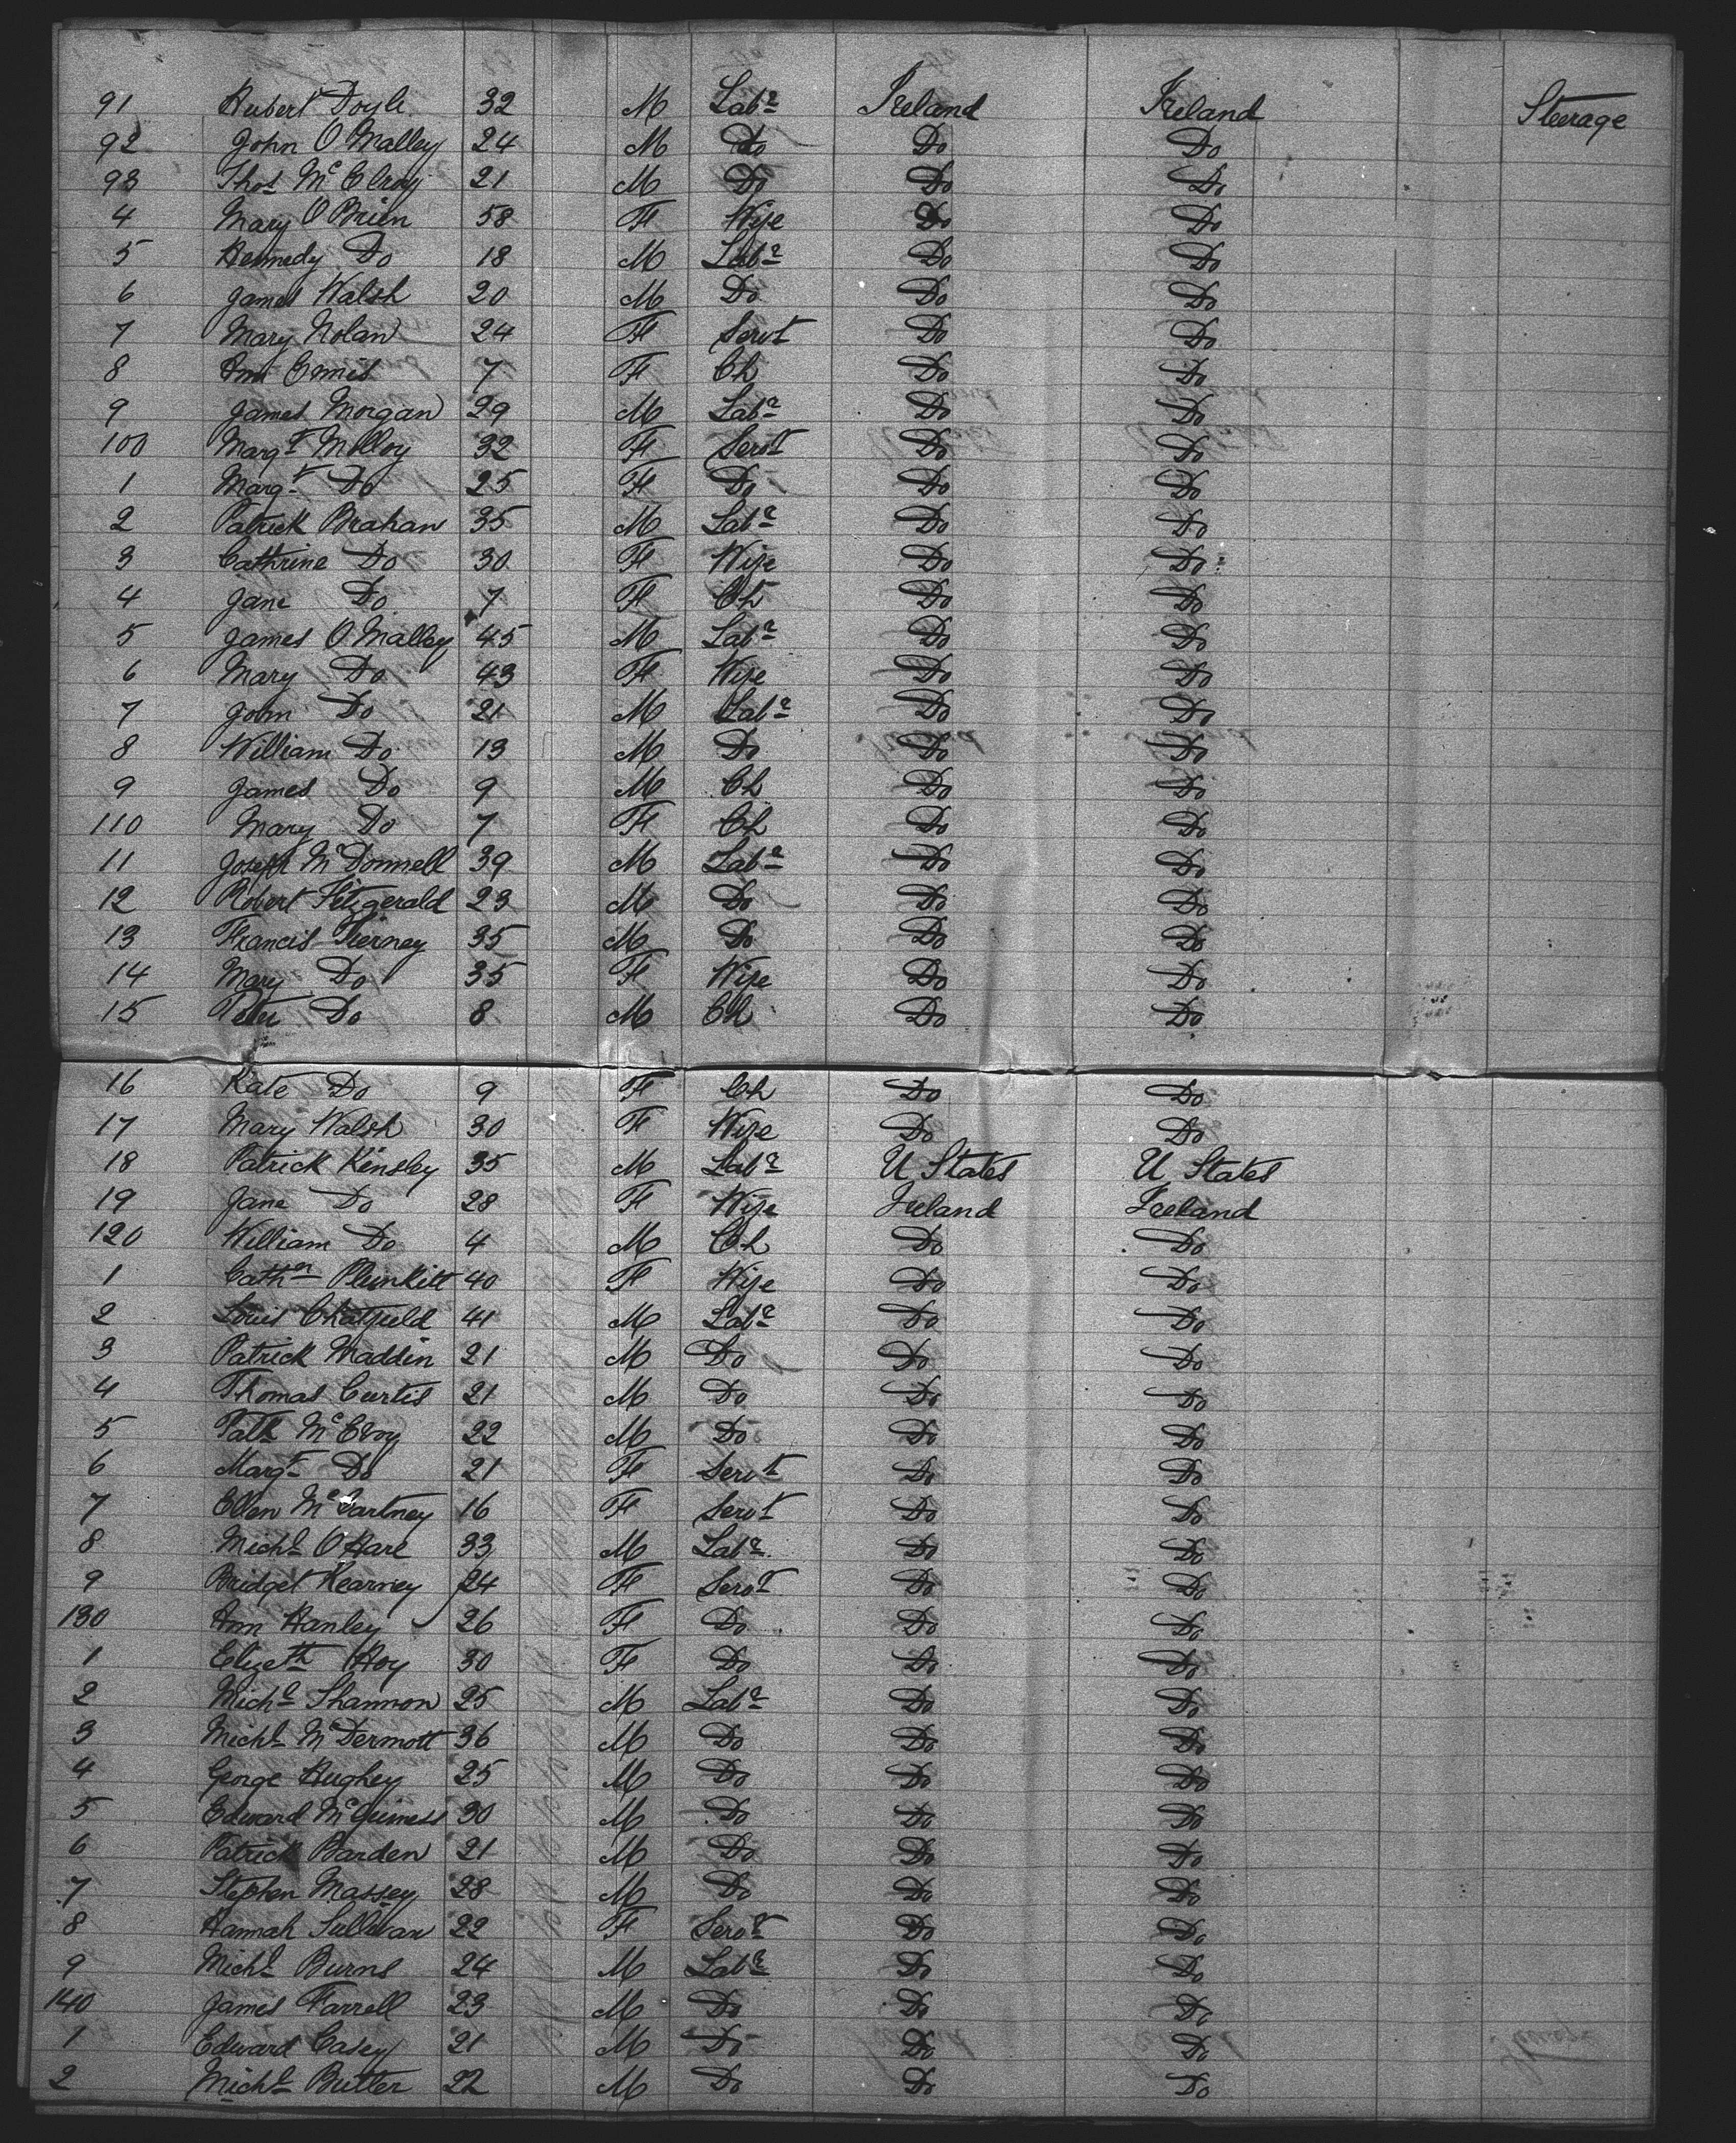 91 Hubert Doyle 32 M Labr Ireland Ireland Steerage
92 John O Malley 24 M Do Do Do
93 Thos McElroy 21 M Do Do Do
4 Mary O Brien 58 F Wife Do Do
5 Kennedy Do 18 M Labr Do Do
6 James Walsh 20 M Do Do Do
7 Mary Nolan 24 F Servt Do Do
8 Ann Ennis 7 F Ch Do Do
9 James Morgan 29 M Labr Do Do
100 Margt Molloy 32 F Servt Do Do
1 Margt Do 25 F Do Do Do
2 Patrick Brahan 35 M Labr Do Do
3 Cathrine Do 30 F Wife Do Do
4 Jane Do 7 F Ch Do Do
5 James O Malley 45 M Labr Do Do
6 Mary Do 43 F Wife Do Do
7 John Do 21 M Labr Do Do
8 William Do 13 M Do Do Do
9 James Do 9 M Ch Do Do
110 Mary Do 7 F Ch Do Do
11 Joseph McDonnell 39 M Labr Do Do
12 Robert Fitzgerald 23 M Do Do Do
13 Francis Tierney 35 M Do Do Do
14 Mary Do 35 F Wife Do Do
15 Peter Do 8 M Ch Do Do
16 Kate Do 9 F Ch Do Do
17 Mary Walsh 30 F Wife Do Do
18 Patrick Kinsley 35 M Labr U States U States
19 Jane Do 28 F Wife Ireland Ireland
120 William Do 4 M Ch Do Do
1 Cathen Plunkitt 40 F Wife Do Do
2 Louis Chatfield 41 M Labr Do Do
3 Patrick Maddin 21 M Do Do Do
4 Thomas Curtis 21 M Do Do Do
5 Patk McEvoy 22 M Do Do Do
6 Margt Do 21 F Servt Do Do
7 Ellen McCartney 16 F Servt Do Do
8 Michl O Hare 33 M Labr Do Do
9 Bridget Kearney 24 F Servt Do Do
130 Ann Hanley 26 F Do Do Do
1 Elizeth Hoy 30 F Do Do Do
2 Michl Shannon 25 M Labr Do Do
3 Michl McDermott 36 M Do Do Do
4 George Hughey 25 M Do Do Do
5 Edward McGuiness 30 M Do Do Do
6 Patrick Barden 21 M Do Do Do
7 Stephen Massey 28 M Do Do Do
8 Hannah Sullivan 22 F Servt Do Do
9 Michl Burns 24 M Labr Do Do
140 James Farrell 23 M Do Do Do
1 Edward Casey 21 M Do Do Do
2 Michl Butler 22 M Do Do Do